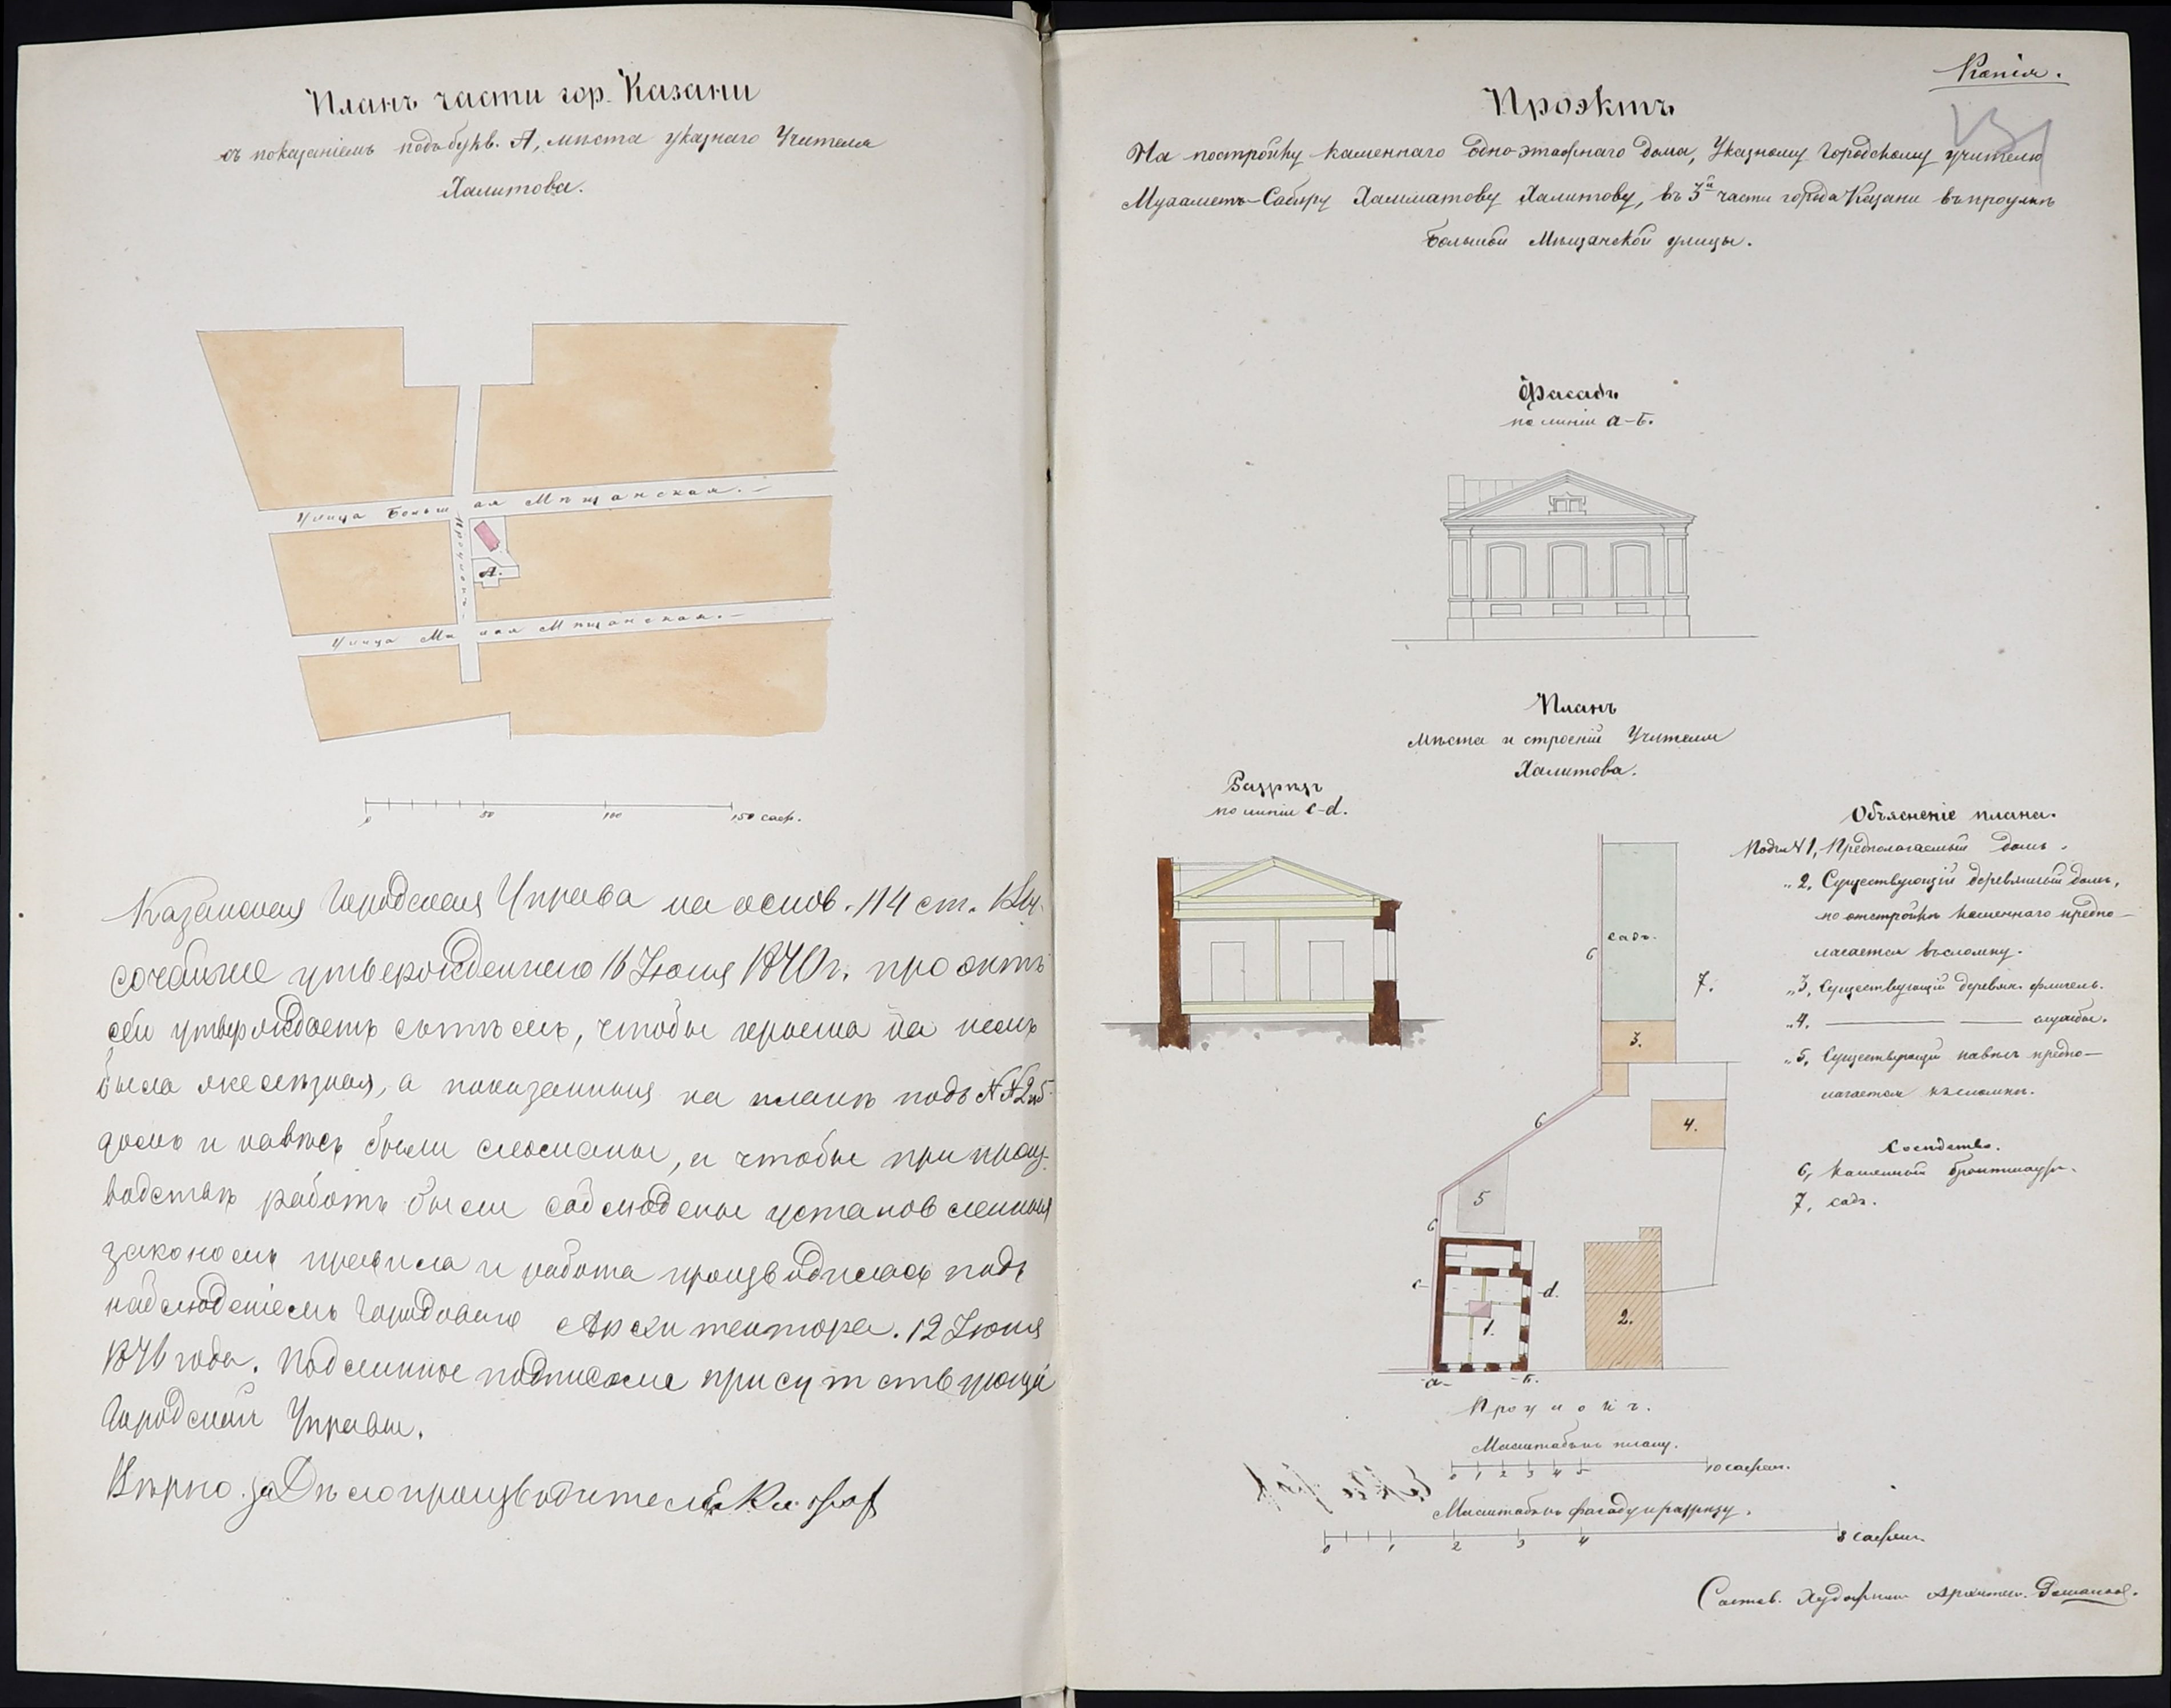 Планъ части гор. Казани
съ показаніемъ подъ букв. А, мѣста указнаго Учителя
Халитова.
Улица Большая Мѣщанская.
Проулокъ
А.
Улица Малая Мѣщанская.
0 50 100 150 саж.
Казанская Городская Управа на основ. 114 ст. Вы-
сочайше утвержденнаго 16 Іюня 1870 г. проэктъ
сей утверждаетъ съ тѣмъ, чтобы крыша на немъ
была желѣзная, а показанныя на планѣ подъ №№ 2 и 5
домъ и навѣсъ были сломаны, и чтобы при произ-
водствѣ работъ были соблюдены установленныя
закономъ правила и работа производилась подъ
наблюденіемъ Городоваго Архитектора. 12 Іюня
1876 года. Подлинное подписали присутствующіе
Городской Управы.
Вѣрно: за Дѣлопроизводителя
Копія.
Проэктъ
На постройку каменнаго одно-этажнаго дома, Указному Городскому учителю
Мухаметъ-Сабиру Халитову, въ 3й части города Казани въ проулкѣ
Большой Мѣщанской улицы.
Фасадъ
по линіи а-б.
Планъ
мѣста и строеній Учителя
Халитова.
Разрѣзъ
по линіи c-d.
Объясненіе плана.
Подъ № 1, Предполагаемый домъ.
„ 2, Существующій деревянный домъ,
по отстройкѣ каменнаго предпо-
лагается въ сломку.
„ 3, Существующій деревян. флигель.
„ 4. — — службы.
„ 5, Существующій навѣсъ предпо-
лагаемый къ сломкѣ.
Сосѣдство.
6, Каменный брантмауръ.
7, садъ.
садъ.
6
7.
3.
6
4.
5
6
c- -d.
1.
2.
а- -б.
Проулокъ.
Масштабъ къ плану.
0 1 2 3 4 5 10 сажен.
Масштабъ къ фасаду и разрѣзу.
0 1 2 3 4 8 сажен.
Состав. Художник Архитек.